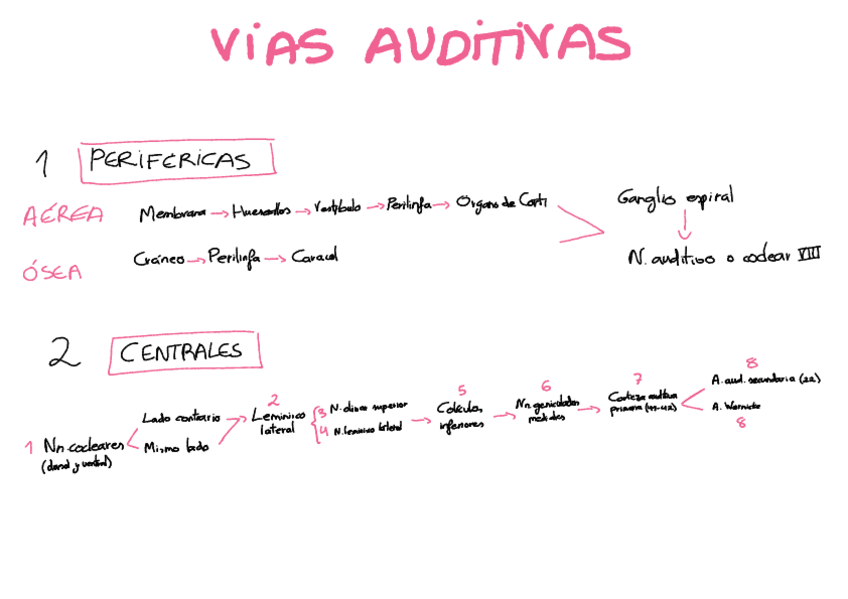 VÍAS AUDITIVAS
1 PERIFÉRICAS
AÉREA Membrana → Huesecillos → Vestíbulo → Perilinfa → Órgano de Corti
ÓSEA Cráneo → Perilinfa → Caracol
Ganglio espiral
N. auditivo o coclear VIII
2 CENTRALES
1 Nn. cocleares
(dorsal y ventral)
Lado contrario
Mismo lado
2
Lemnisco
lateral
3 N. olivar superior
4 N. lemnisco lateral
5
Colículos
inferiores
6
Nn. geniculados
mediales
7
Corteza auditiva
primaria (41-42)
8
A. aud. secundaria (22)
A. Wernicke
8